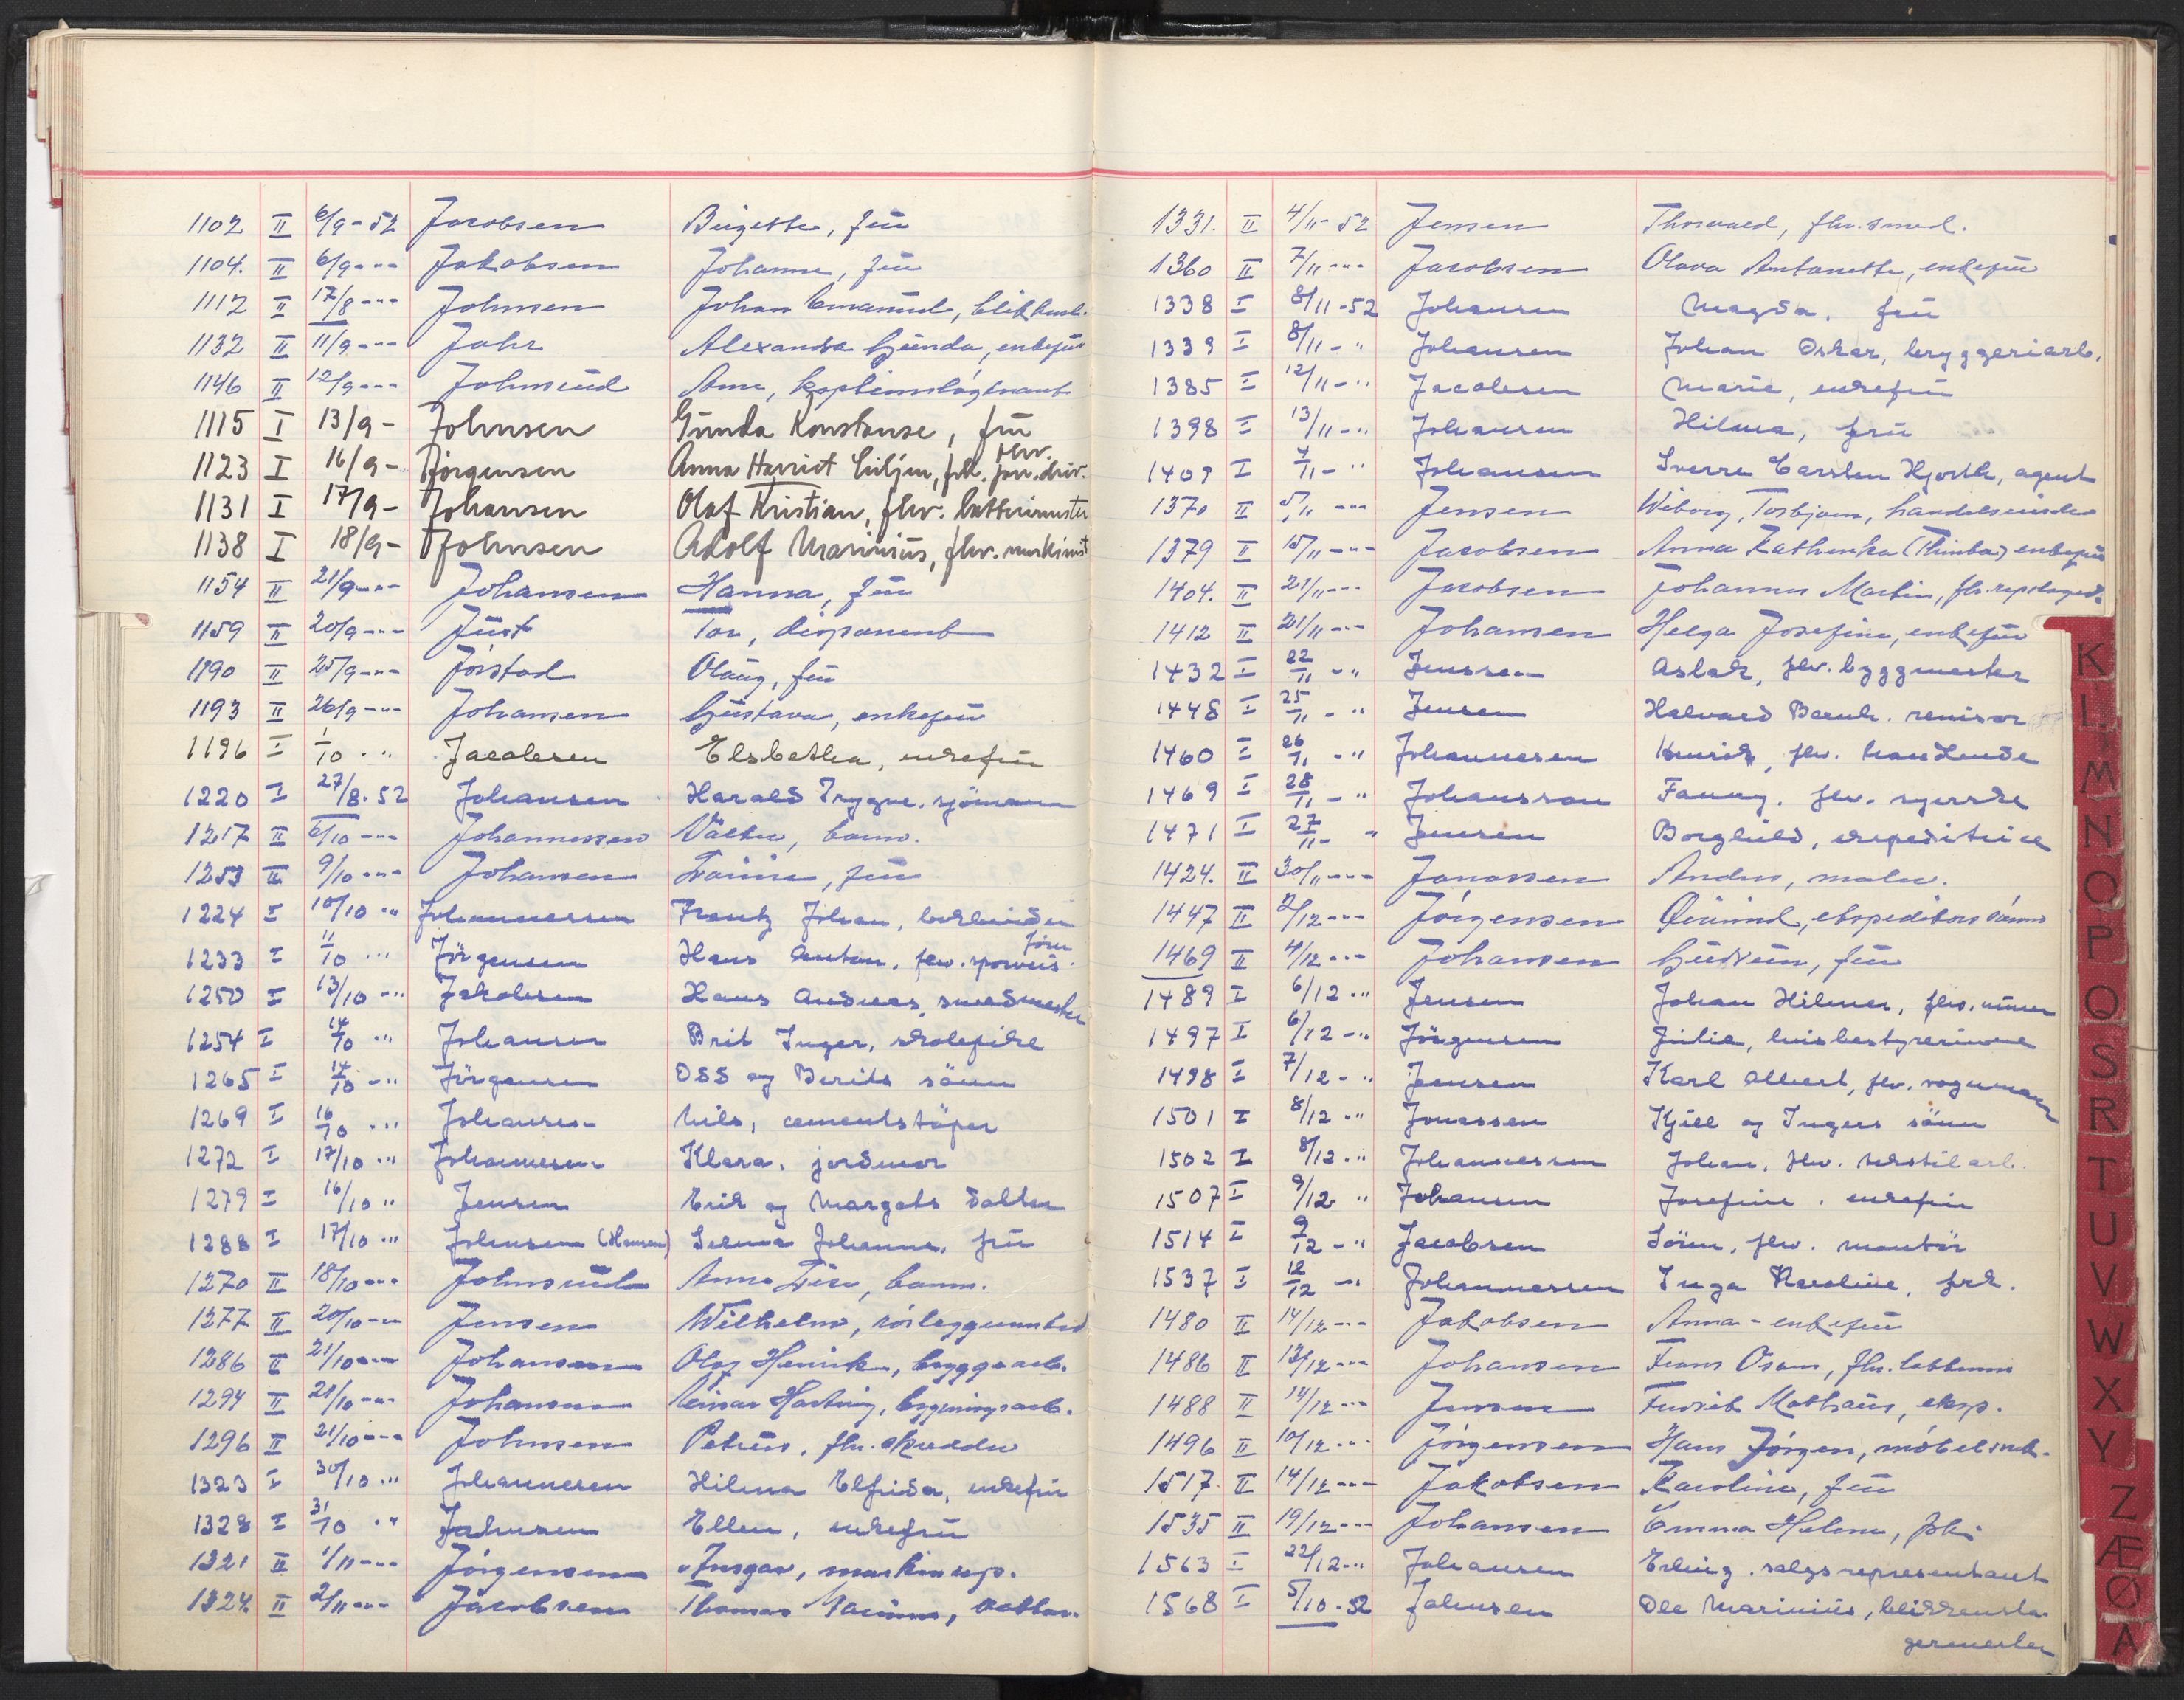 1102 II 6/9-52 Jacobsen Birgette, fru
1104. II 6/9--- Jakobsen Johanne, fru
1112 II 17/8--- Johnsen Johan Emanuel, blikkensl.
1132 II 11/9--- Jahr Alexandra Gunda, enkefru
1146 II 12/9--- Johnsrud Arne,
1115 I 13/9- Johnsen Gunda Konstanse, fru
1123 I 16/9- Jörgensen Anna Harriet frk. fhv.
1131 I 17/9- Johansen Olaf Kristian, fhv.
1138 I 18/9- Johnsen Adolf Marinius, fhv.
1154 II 21/9--- Johansen Hanna, fru
1159 II 20/9--- Just Tor, disponent
1190 II 25/9--- Jörstad Olaug, fru
1193 II 26/9--- Johansen Gustava, enkefru
1196 I 1/10 -" Jacobsen Elsbetha, enkefru
1220 I 27/8.52 Johansen Harald Trygve, sjömann
1217 II 6/10--- Johannessen barn.
1253 II 9/10--- Johansen fru
1224 I 10/10 -" Johannessen Frantz Johan, bokbinder
1233 I 11/10 -" Jörgensen Hans Anton, fhv. sporveis förer
1250 I 13/10 -" Jakobsen Hans Andreas, smedmester
1254 I 14/10 -" Johansen Brit Inger, skolepike
1265 I 14/10 -" Jörgensen Odd og Berits sönn
1269 I 16/10 -" Johansen Nils, cementstöper
1272 I 17/10 -" Johannesen Klara, jordmor
1279 I 16/10 " Jensen Erik og Margots datter
1288 I 17/10 -" Johnsen (Hansen) Selma Johanne, fru
1270 II 18/10--- Johnsrud Anne Lise, barn.
1277 II 20/10--- Jensen Wilhelm, rörleggermester
1286 II 21/10--- Johansen Olaf Henrik, bryggearb.
1294 II 21/10--- Johansen Einar Hartvig, bygningsarb.
1296 II 21/10--- Johnsen Petrus, fhv. skredder
1323 I 30/10 -" Johannesen Hilma Elfrida, enkefru
1328 I 31/10 -" Johnsen Ellen, enkefru
1321 II 1/11--- Jörgensen Ansgar, maskinrep.
1324. II 2/11--- Jacobsen Thomas
1331. II 4/11-52 Jensen Thorvald, fhv. smed.
1360 II 7/11--- Jacobsen Olava Antonette, enkefru
1338 I 8/11-52 Johansen Magda, fru
1339 I 8/11-" Johansen Johan Oskar, bryggeriarb.
1385 I 12/11-" Jacobsen Marie, enkefru
1398 I 13/11-" Johansen Hilma, fru
1409 I 4/11-" Johansen Sverre Carsten Hjorth, agent
1370 II 5/11 --- Jensen Wiborg, Torbjørn,
1379 II 15/11--- Jacobsen Anna Kathinka (Thinka) enkefru
1404. II 21/11--- Jacobsen Johannes Martin, fhv. repslager.
1412 II 21/11--- Johansen Helga Josefine, enkefru
1432 I 22/11 -" Jenssen Aslak, fhv. byggmester
1448 I 25/11 -" Jensen Halvard Bernh. revisor
1460 I 26/11 -" Johannesen Henrik, fhv. handlende
1469 I 28/11 -" Johansson Fanny, fhv. syerske
1471 I 27/11- " Jensen Borghild, ekspeditrice
1424. II 30/11--- Jonassen Anders, maler.
1447 II 2/12--- Jörgensen Öivind, ekspeditörs sönn
1469 II 4/12--- Johansen Gudrun, fru
1489 I 6/12 -" Jensen Johan Hilmer, fhv. murer
1497 I 6/12 -" Jörgensen Julie, husbestyrerinne
1498 I 7/12 -" Jensen Karl Albert, fhv. vognmann
1501 I 8/12 -" Jonassen Kjell og Ingers sönn
1502 I 8/12 -" Johannessen Johan, fhv. tekstilarb.
1507 I 9/12 " Johansen Josefine, enkefru
1514 I 9/12 -" Jacobsen Sören, fhv. montör
1537 I 12/12 -" Johannessen Inga Karoline, frk.
1480 II 14/12--- Jakobsen Anna - enkefru
1486 II 13/12--- Johansen Frans Oscar, fhv.
1488 II 14/12--- Jensen Fredrik Mathæus, eksp.
1496 II 10/12--- Jörgensen Hans Jörgen, möbelsnek.
1517. II 14/12--- Jakobsen Karoline, fru
1535 II 19/12--- Johansen Emma Helene,
1563 I 22/12 -" Johansen Erling, salgsrepresentant
1568 I 5/10-52 Johnsen Ole Marinius, blikkensla-
germester
K
L
M
N
O
P
Q
S
R
T
U
V
W
X
Y
Z
Æ
Ø
A